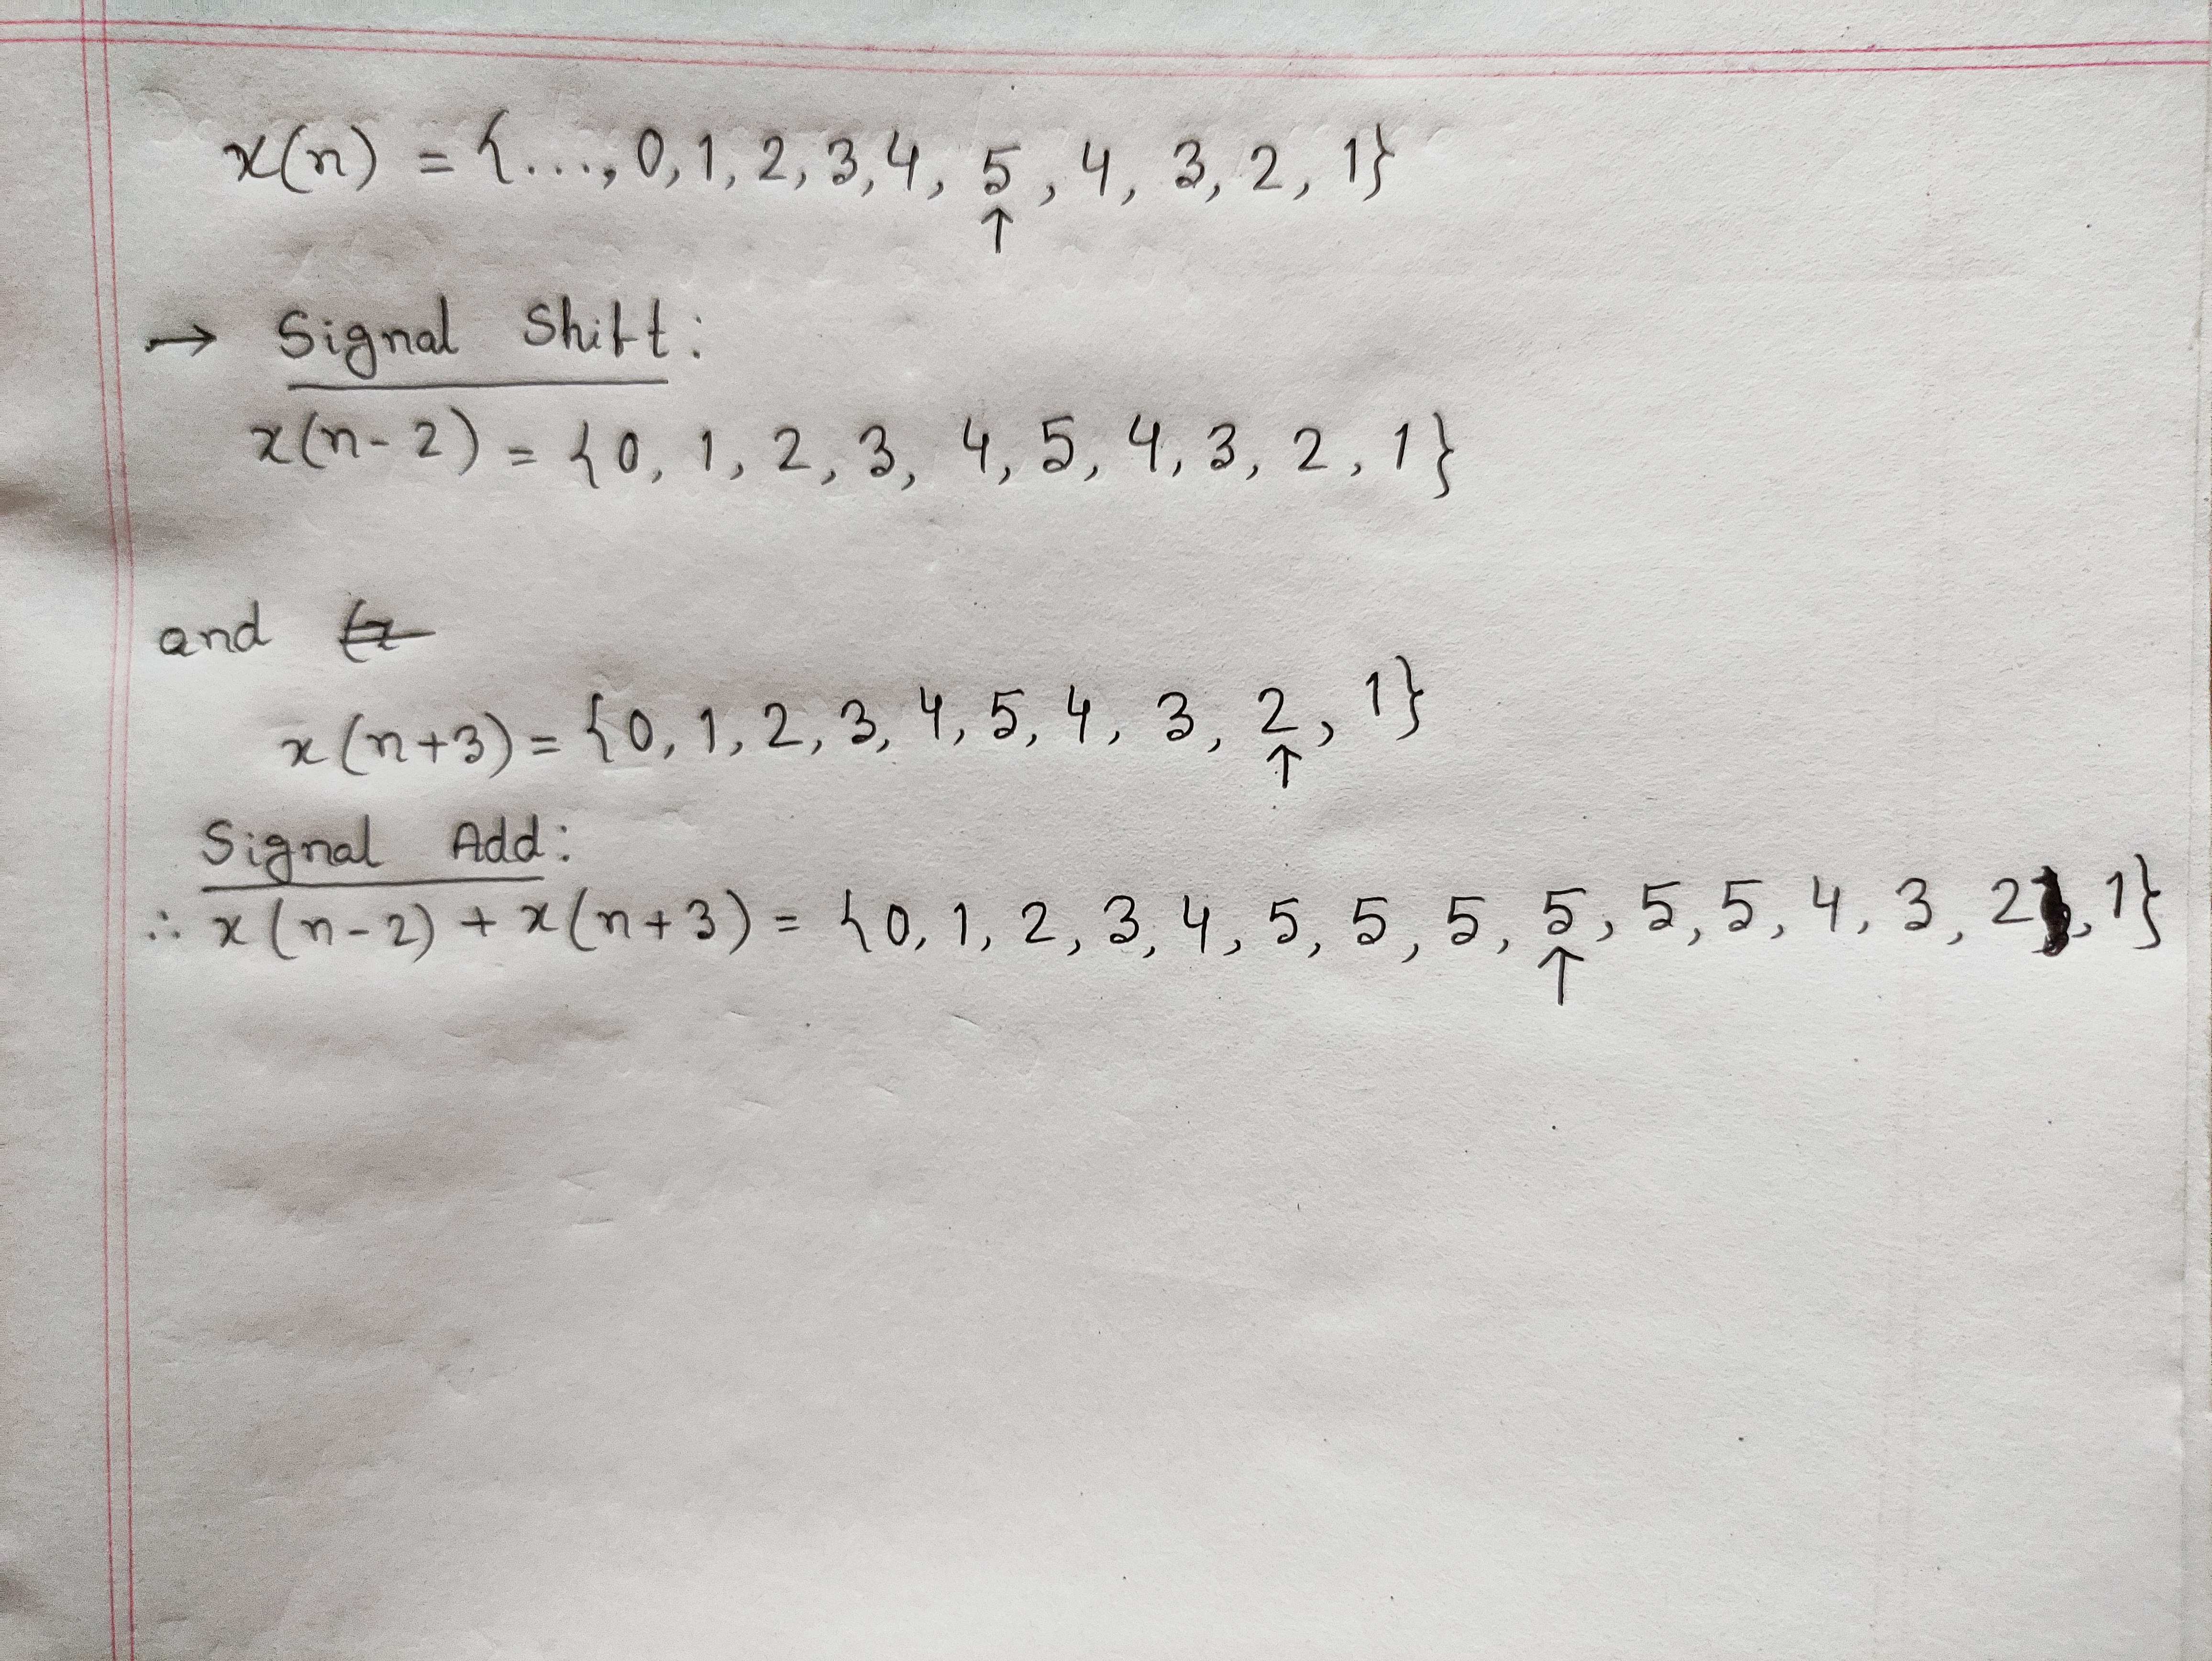 x(n) = {..., 0, 1, 2, 3, 4, 5, 4, 3, 2, 1}
↑
→ Signal Shift:
x(n-2) = {0, 1, 2, 3, 4, 5, 4, 3, 2, 1}
and
x(n+3) = {0, 1, 2, 3, 4, 5, 4, 3, 2, 1}
↑
Signal Add:
∴ x(n-2) + x(n+3) = {0, 1, 2, 3, 4, 5, 5, 5, 5, 5, 5, 4, 3, 2, 1}
↑